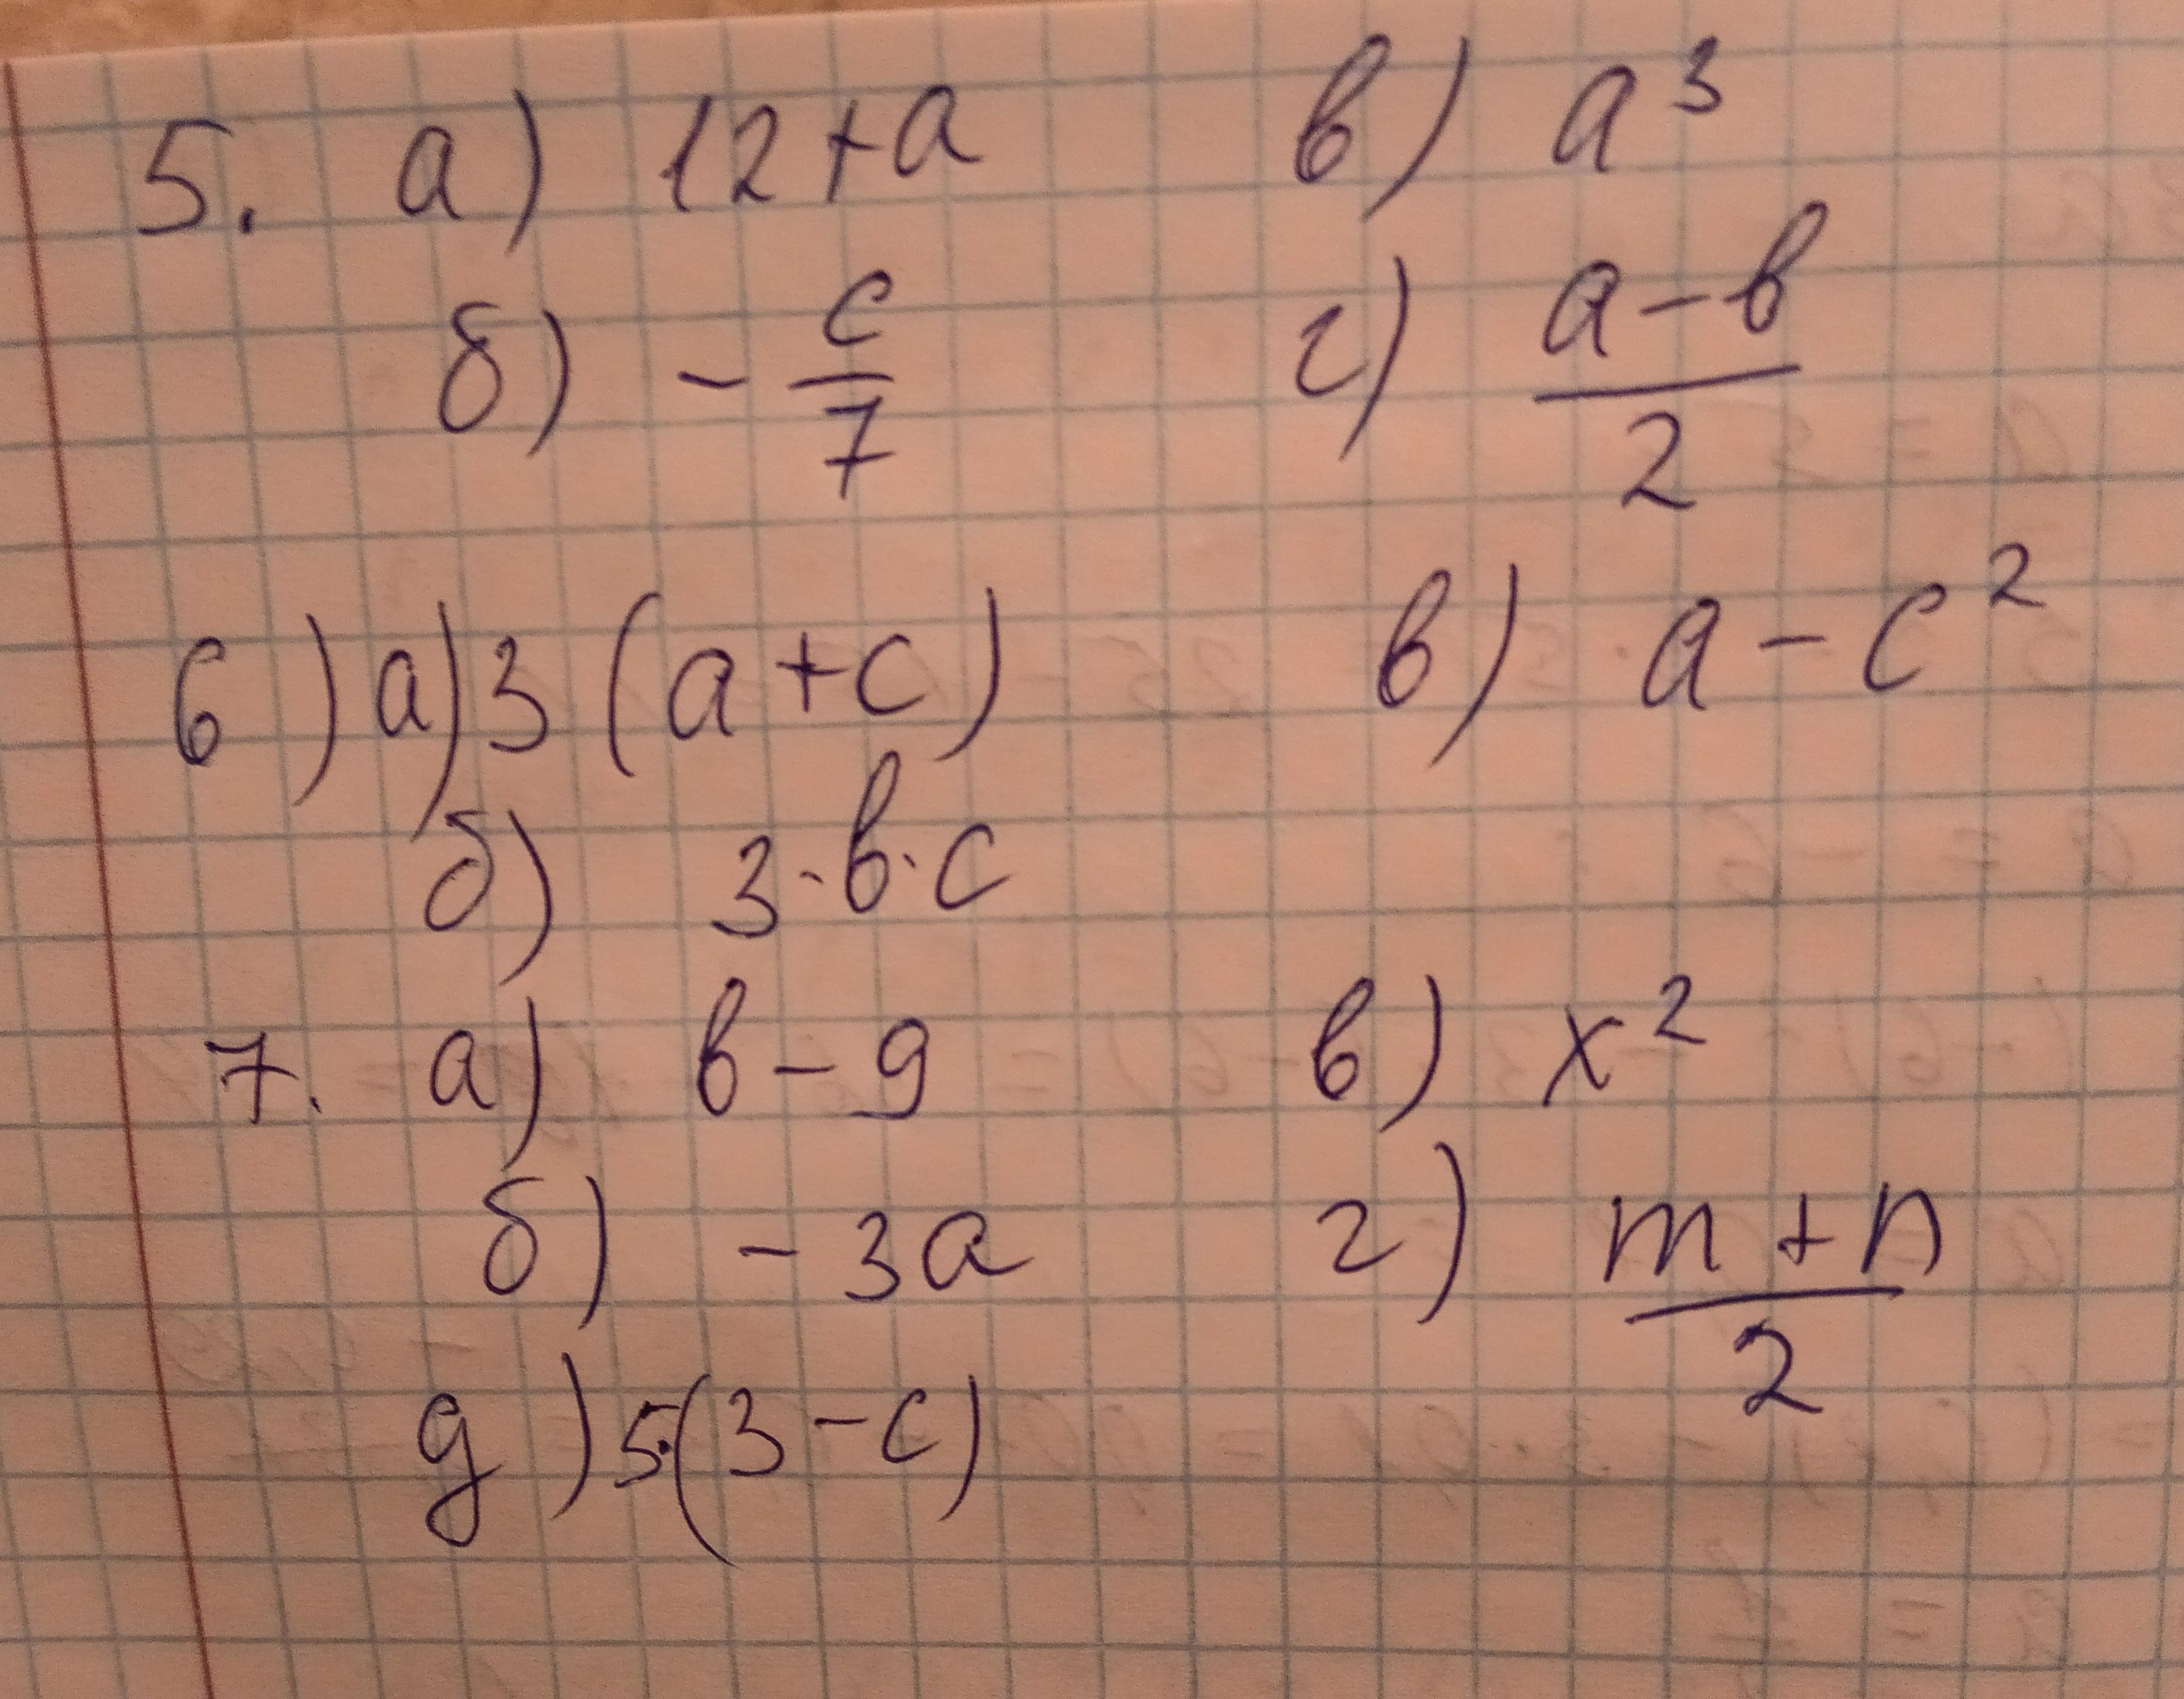 5. а) 12+a в) a³
б) -c/7 г) (a-b)/2
6) а) 3(a+c) в) a-c²
б) 3·b·c
7. а) b-9 в) x²
б) -3a г) (m+n)/2
д) 5·(3-c)